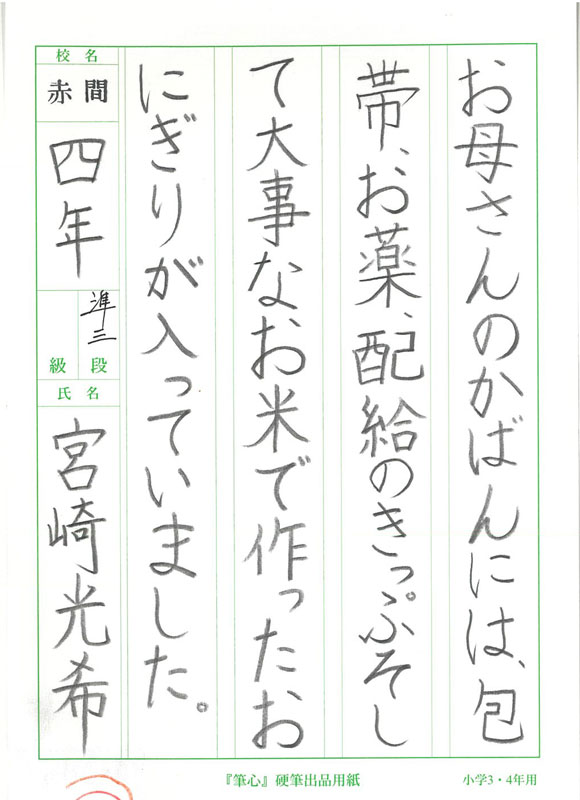 お母さんのかばんには、包
帯、お薬、配給のきっぷそし
て大事なお米で作ったお
にぎりが入っていました。
校名
赤間
四年
準三
段
級
氏名
宮崎光希
『筆心』硬筆出品用紙
小学3・4年用